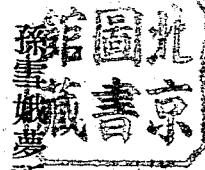 北京
圖書
館藏
孫雪娥夢